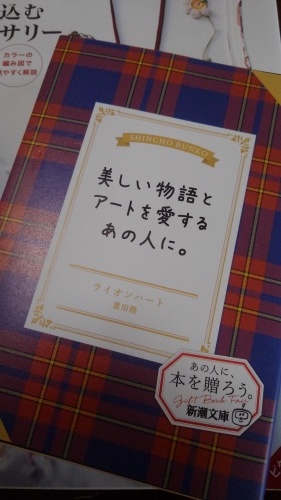 込む
サリー
カラーの
編み図で
見やすく解説
SHINCHO BUNKO
美しい物語と
アートを愛する
あの人に。
ライオンハート
恩田陸
あの人に、
本を贈ろう。
Gift Book Fair
新潮文庫